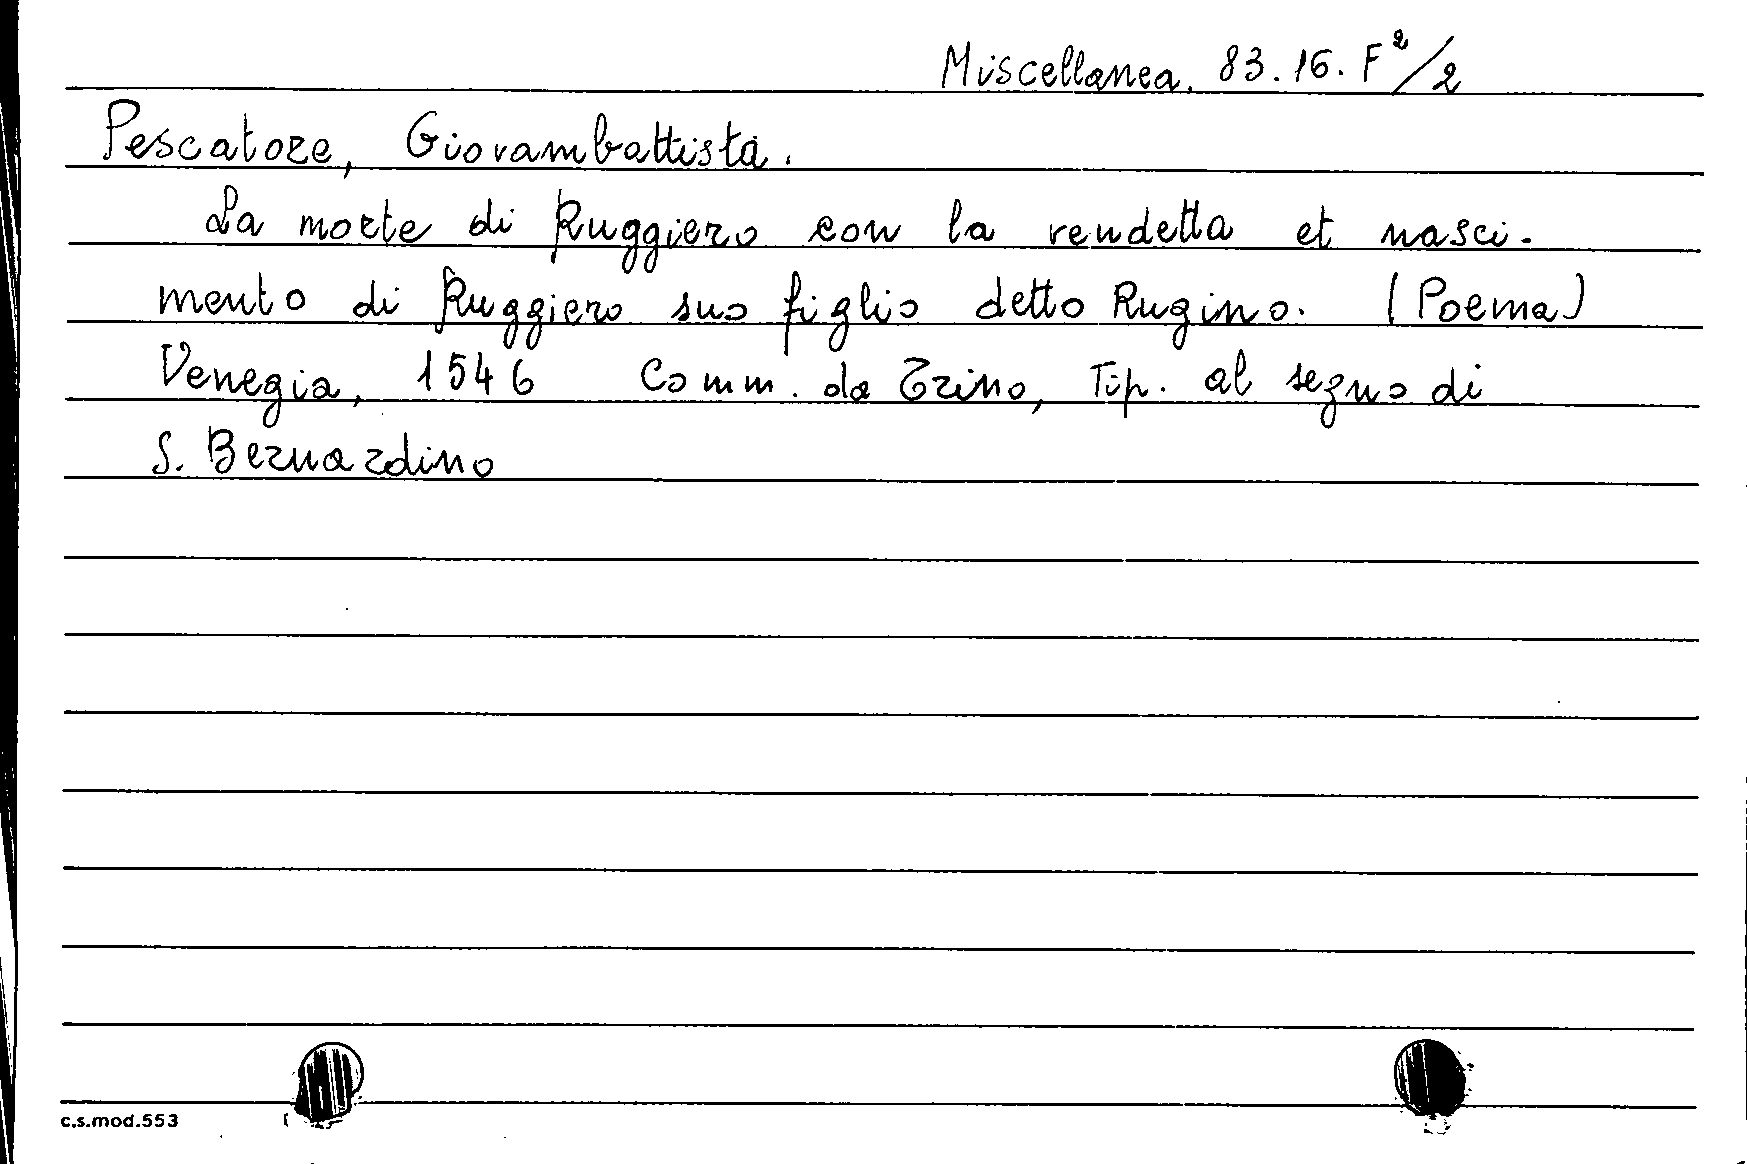 Miscellanea. 83.16.F²/2
Pescatore, Giovambattista.
La morte di Ruggiero con la vendetta et nasci-
mento di Ruggiero suo figlio detto Rugino. (Poema)
Venegia, 1546 Comm. da Trino, Tip. al segno di
S. Bernardino
c.s.mod.553